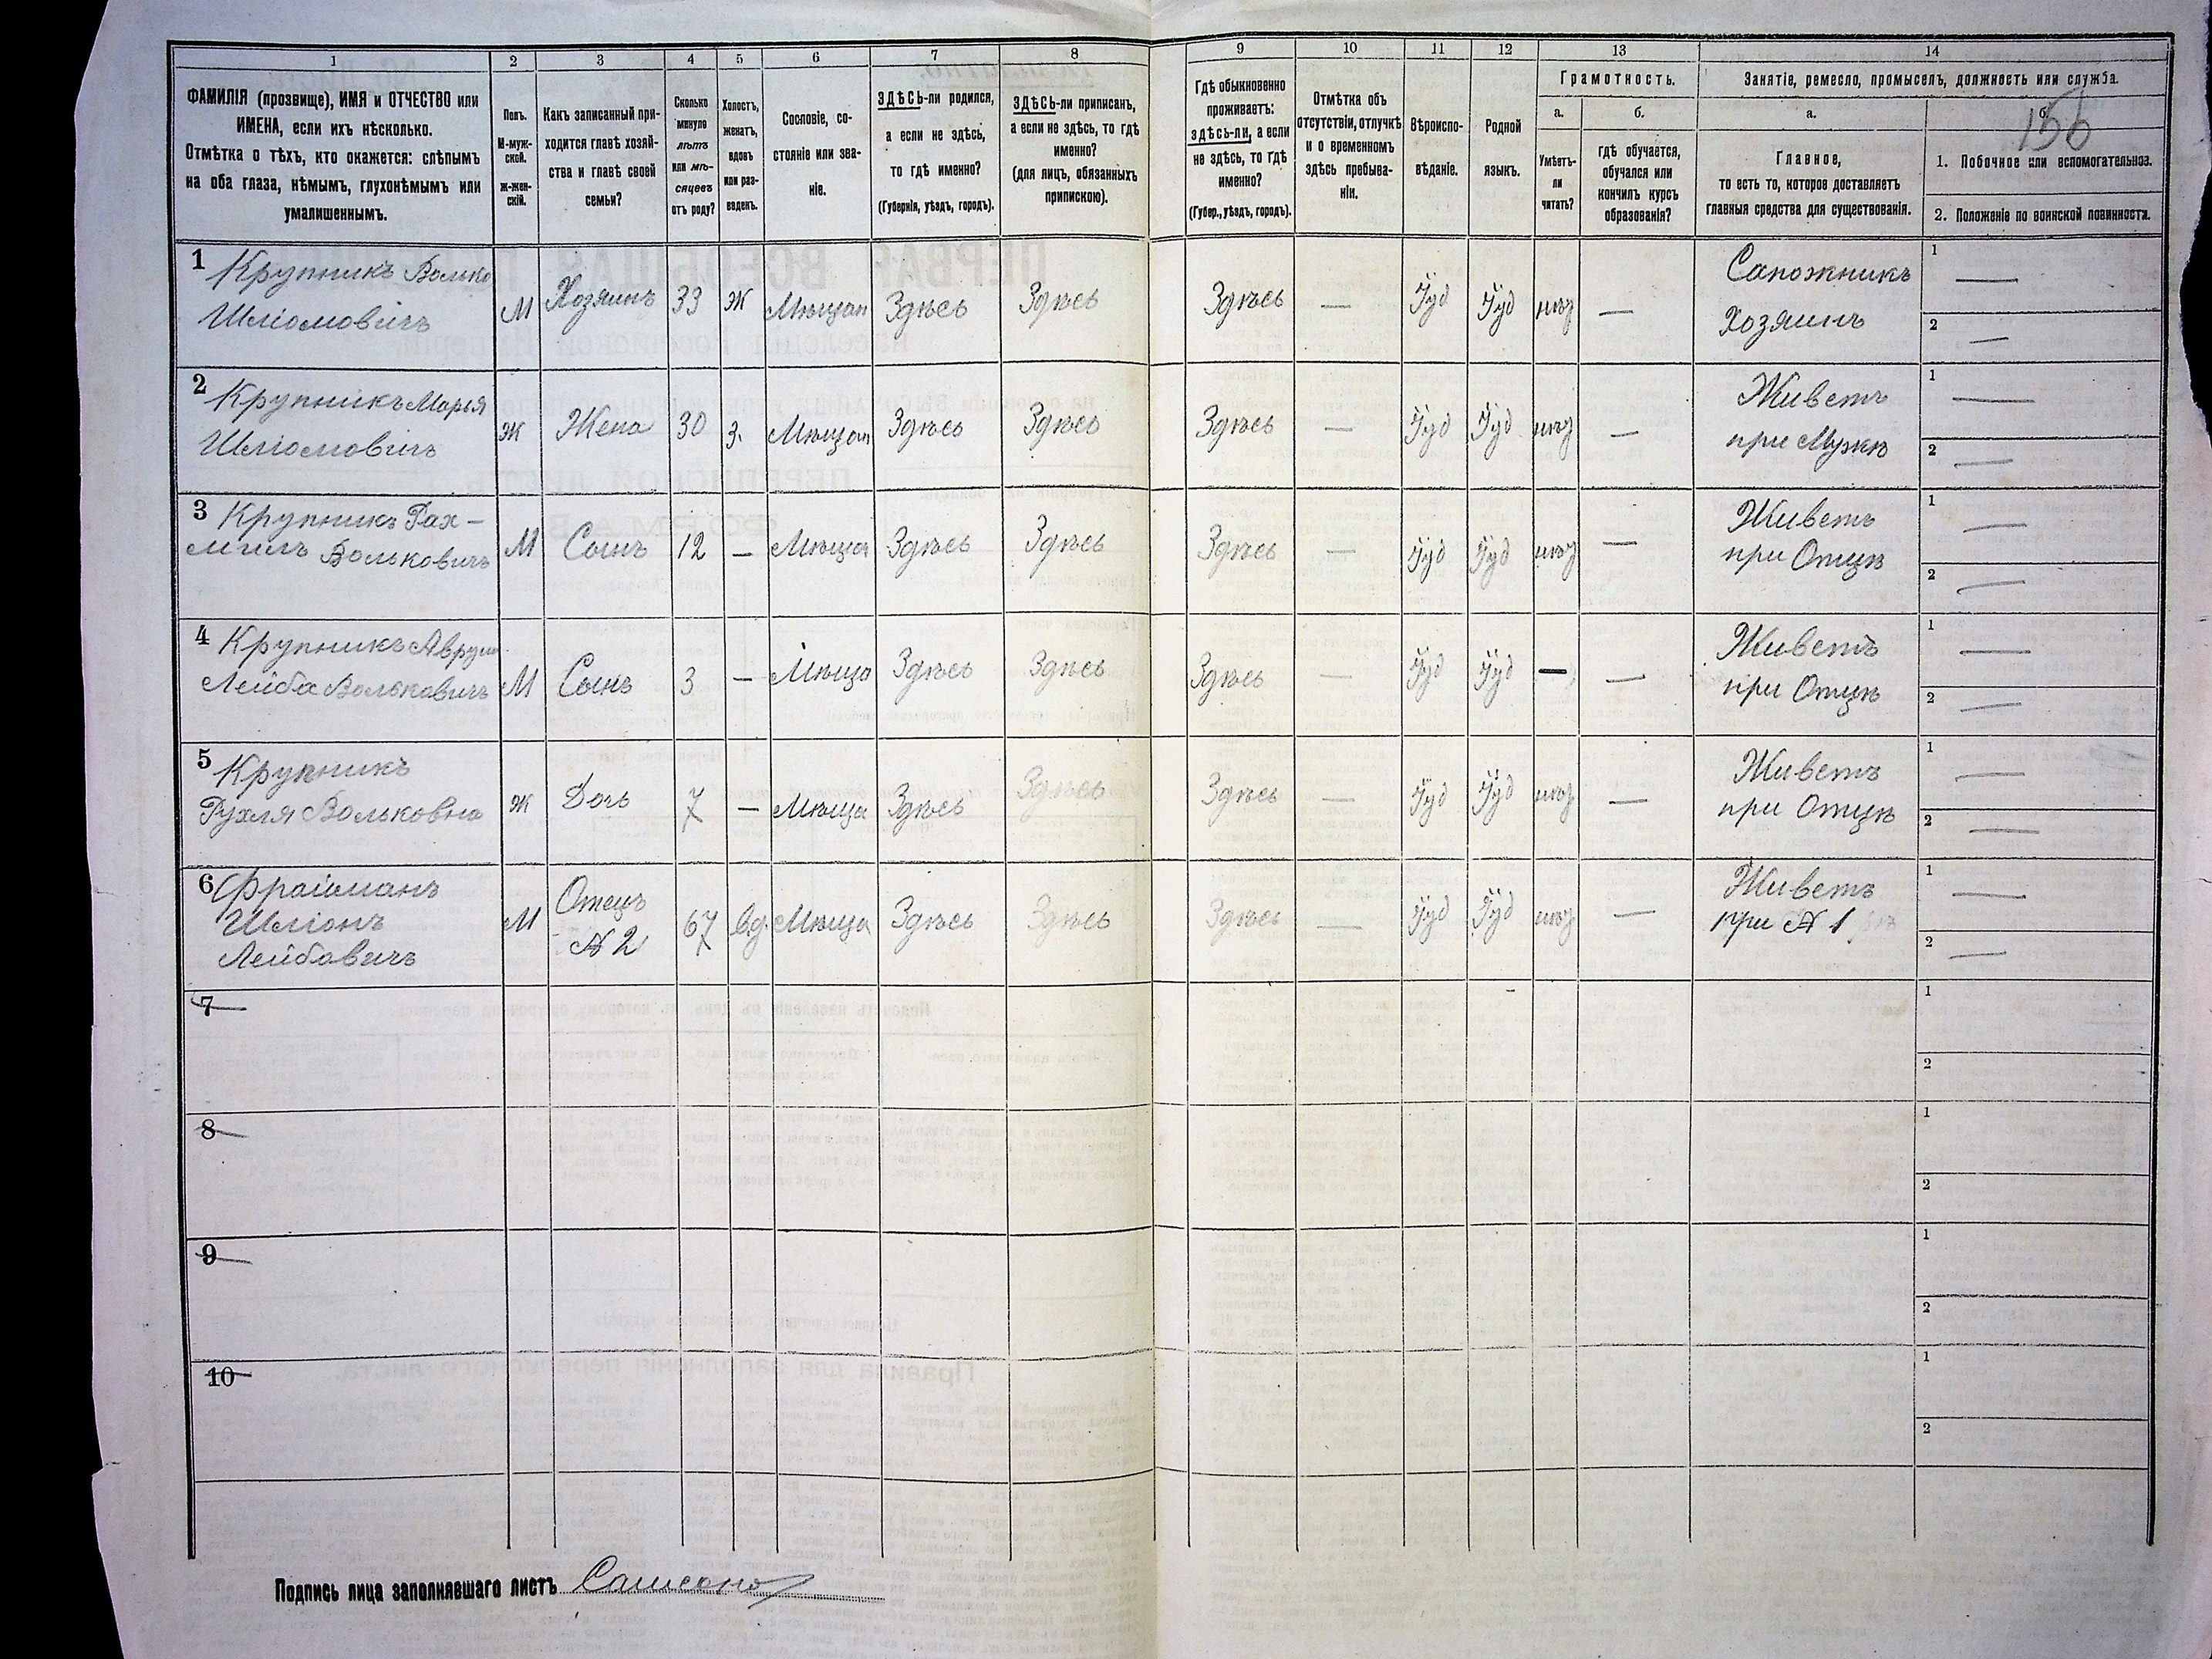 1 2 3 4 5 6 7 8 9 10 11 12 13 14
ФАМИЛІЯ (прозвище), ИМЯ и ОТЧЕСТВО или
ИМЕНА, если ихъ нѣсколько.
Отмѣтка о тѣхъ, кто окажется: слѣпымъ
на оба глаза, нѣмымъ, глухонѣмымъ или
умалишеннымъ.
Полъ.
М-муж-
ской.
ж-жен-
скій.
Какъ записанный при-
ходится главѣ хозяй-
ства и главѣ своей
семьи?
Сколько
минуло
лѣтъ
или мѣ-
сяцевъ
отъ роду?
Холостъ,
женатъ,
вдовъ
или раз-
веденъ.
Сословіе, со-
стояніе или зва-
ніе.
ЗДѢСЬ-ли родился,
а если не здѣсь,
то гдѣ именно?
(Губернія, уѣздъ, городъ).
ЗДѢСЬ-ли приписанъ,
а если не здѣсь, то гдѣ
именно?
(для лицъ, обязанныхъ
припискою).
Гдѣ обыкновенно
проживаетъ:
здѣсь-ли, а если
не здѣсь, то гдѣ
именно?
(Губер., уѣздъ, городъ).
Отмѣтка объ
отсутствіи, отлучкѣ
и о временномъ
здѣсь пребыва-
ніи.
Вѣроиспо-
вѣданіе.
Родной
языкъ.
Грамотность.
а.
Умѣетъ-
ли
читать?
б.
гдѣ обучается,
обучался или
кончилъ курсъ
образованія?
Занятіе, ремесло, промыселъ, должность или служба.
156
а.
Главное,
то есть то, которое доставляетъ
главныя средства для существованія.
б.
1. Побочное или вспомогательное.
2. Положеніе по воинской повинности.
1 Крупникъ Волько
Шліомовичъ
М Хозяинъ 33 Ж Мѣщан Здѣсь Здѣсь Здѣсь — Іуд Іуд — Сапожникъ
Хозяинъ
1 —
2 —
2 Крупникъ Марья
Шліомовичъ
Ж Жена 30 З. Мѣщан Здѣсь Здѣсь Здѣсь — Іуд Іуд — Живетъ
при Мужѣ
1 —
2 —
3 Крупникъ Рах-
милъ Вольковичъ
М Сынъ 12 — Мѣща Здѣсь Здѣсь Здѣсь — Іуд Іуд — Живетъ
при Отцѣ
1 —
2 —
4 Крупникъ Аврум
Лейба Вольковичъ
М Сынъ 3 — Мѣща Здѣсь Здѣсь Здѣсь — Іуд Іуд — — Живетъ
при Отцѣ
1 —
2 —
5 Крупникъ
Рухля Вольковна
Ж Дочь 7 — Мѣща Здѣсь Здѣсь Здѣсь — Іуд Іуд — Живетъ
при Отцѣ
1 —
2 —
6 Фрайманъ
Шліонъ
Лейбовичъ
М Отецъ
№ 2
67 Вд. Мѣща Здѣсь Здѣсь Здѣсь — Іуд Іуд — Живетъ
при № 1
1 —
2 —
7
1
2
8
1
2
9
1
2
10
1
2
Подпись лица заполнявшаго листъ